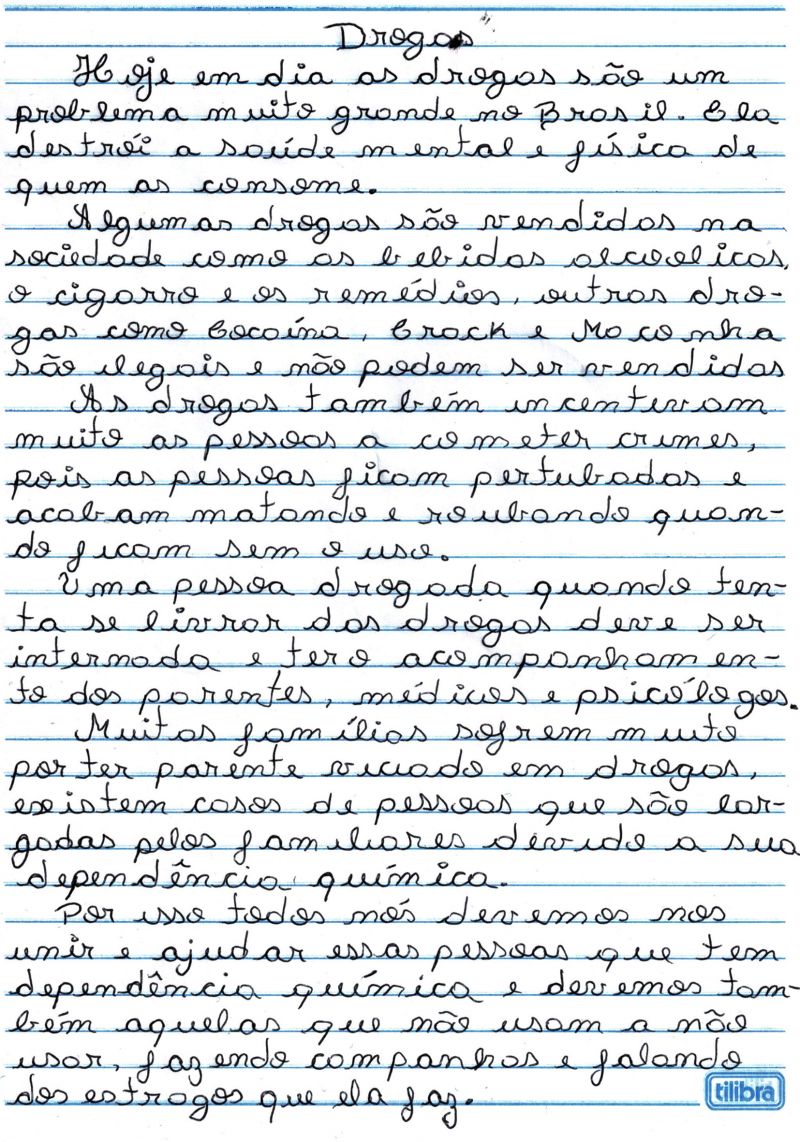 Drogas
Hoje em dia as drogas são um
problema muito grande no Brasil. Ela
destrói a saúde mental e física de
quem as consome.
Algumas drogas são vendidas na
sociedade como as bebidas alcoolicas,
o cigarro e os remédios, outras dro-
gas como Cocaína, Crack e Maconha
são ilegais e não podem ser vendidas
As drogas também incentivam
muito as pessoas a cometer crimes,
pois as pessoas ficam pertubadas e
acabam matando e roubando quan-
do ficam sem o uso.
Uma pessoa drogada quando ten-
ta se livrar das drogas deve ser
internada e ter o acompanhamen-
to dos parentes, médicos e psicólogos.
Muitas famílias sofrem muito
por ter parente viciado em drogas,
existem casos de pessoas que são lar-
gadas pelos familiares devido a sua
dependência química.
Por isso todos nós devemos nos
unir e ajudar essas pessoas que tem
dependência química e devemos tam-
bém aquelas que não usam a não
usar, fazendo companhas e falando
dos estragos que ela faz.
tilibra